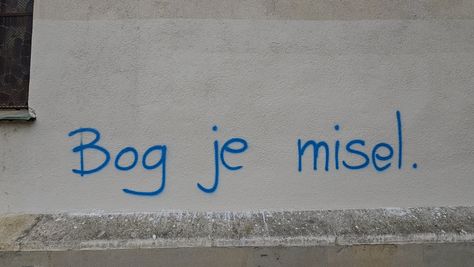 Bog je misel.